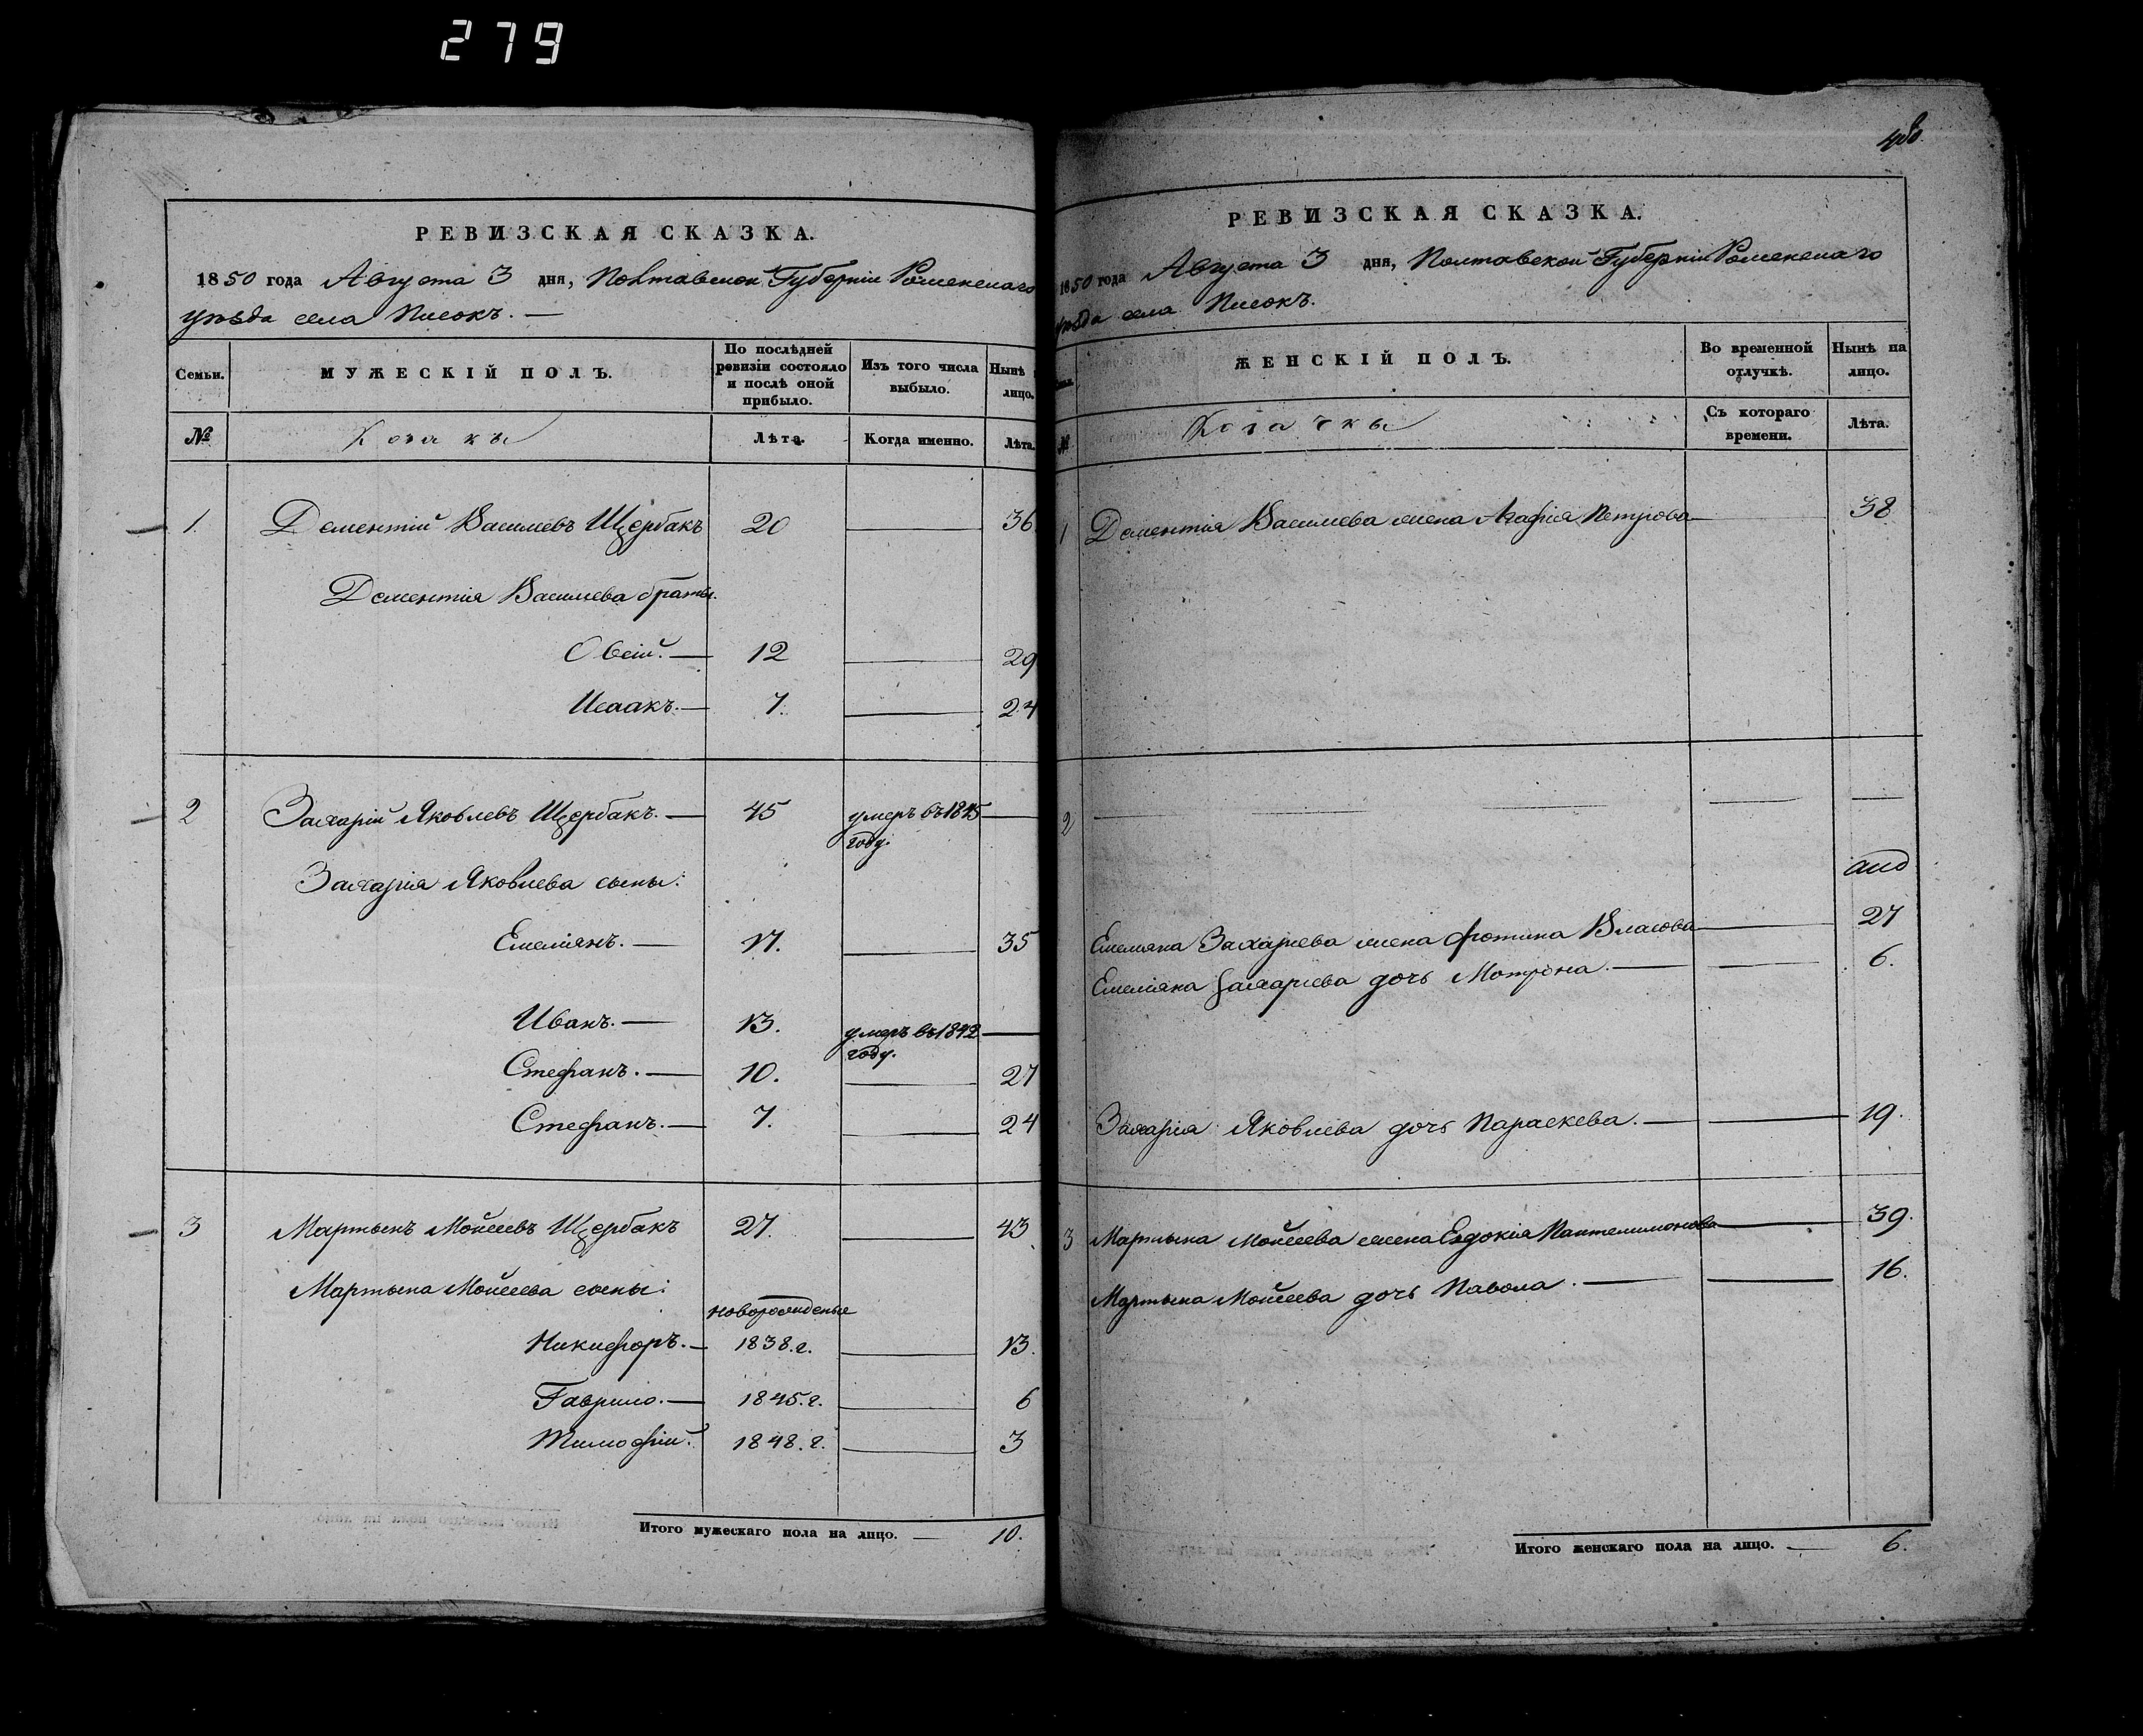 279
РЕВИЗСКАЯ СКАЗКА.
1850 года Августа 3 дня, Полтавской Губерніи Роменскаго
уѣзда села Писокъ. —
Семьи. МУЖЕСКІЙ ПОЛЪ. По послѣдней ревизіи состояло и послѣ оной прибыло. Изъ того числа выбыло. Нынѣ лицо.
№ Козаки Лѣта. Когда именно. Лѣта.
1. Дементій Васильевъ Щербакъ 20 — 36
Дементія Васильева братья.
Овсій. — 12 — 29
Исаакъ. — 7. — 24
2 Захарій Яковлевъ Щербакъ. — 45 умеръ въ 1845 году. —
Захарія Яковлева сыны:
Емеліянъ. — 17. — 35
Иванъ. — 13. умеръ въ 1842 году. —
Стефанъ. — 10. — 27
Стефанъ. — 7. — 24
3 Мартынъ Мойсеевъ Щербакъ 27. — 43
Мартына Мойсеева сыны:
новорожденые
Никифоръ. — 1838.г. — 13.
Гаврило. — 1845.г. — 6
Тимофій. 1848.г. — 3
Итого мужескаго пола на лицо. — 10.
РЕВИЗСКАЯ СКАЗКА.
1850 года Августа 3 дня, Полтавской Губерніи Роменскаго
уѣзда села Писокъ.
ЖЕНСКІЙ ПОЛЪ. Во временной отлучкѣ. Нынѣ на лицо.
№ Козачки Съ котораго времени. Лѣта.
1 Дементія Васильева жена Агафія Петрова — 38
2 — — — —
27
Емеліяна Захаріева жена Фотина Власова —
Емеліяна Захаріева дочь Мотрона. — — 6.
Захарія Яковлева дочь Параскева. — — 19.
3 Мартына Мойсеева жена Евдокія Пантелимонова — 39.
Мартына Мойсеева дочь Павола. — — 16.
Итого женскаго пола на лицо. — 6.